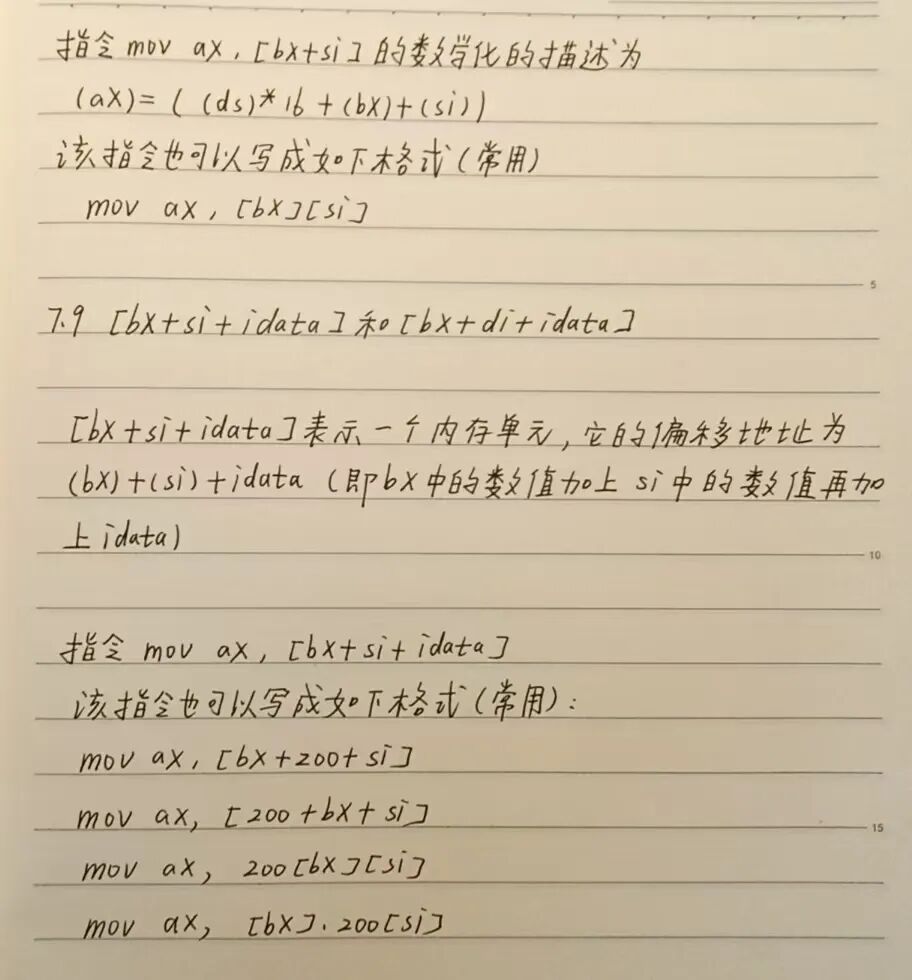 指令 mov ax, [bx+si] 的数学化的描述为
(ax)= ( (ds)*16 + (bx)+(si))
该指令也可以写成如下格式(常用)
mov ax, [bx][si]
5
7.9 [bx+si+idata] 和 [bx+di+idata]
[bx+si+idata] 表示一个内存单元, 它的偏移地址为
(bx)+(si)+idata (即bx中的数值加上 si中的数值再加
上idata)
10
指令 mov ax, [bx+si+idata]
该指令也可以写成如下格式(常用):
mov ax, [bx+200+si]
mov ax, [200+bx+si]
15
mov ax, 200[bx][si]
mov ax, [bx].200[si]